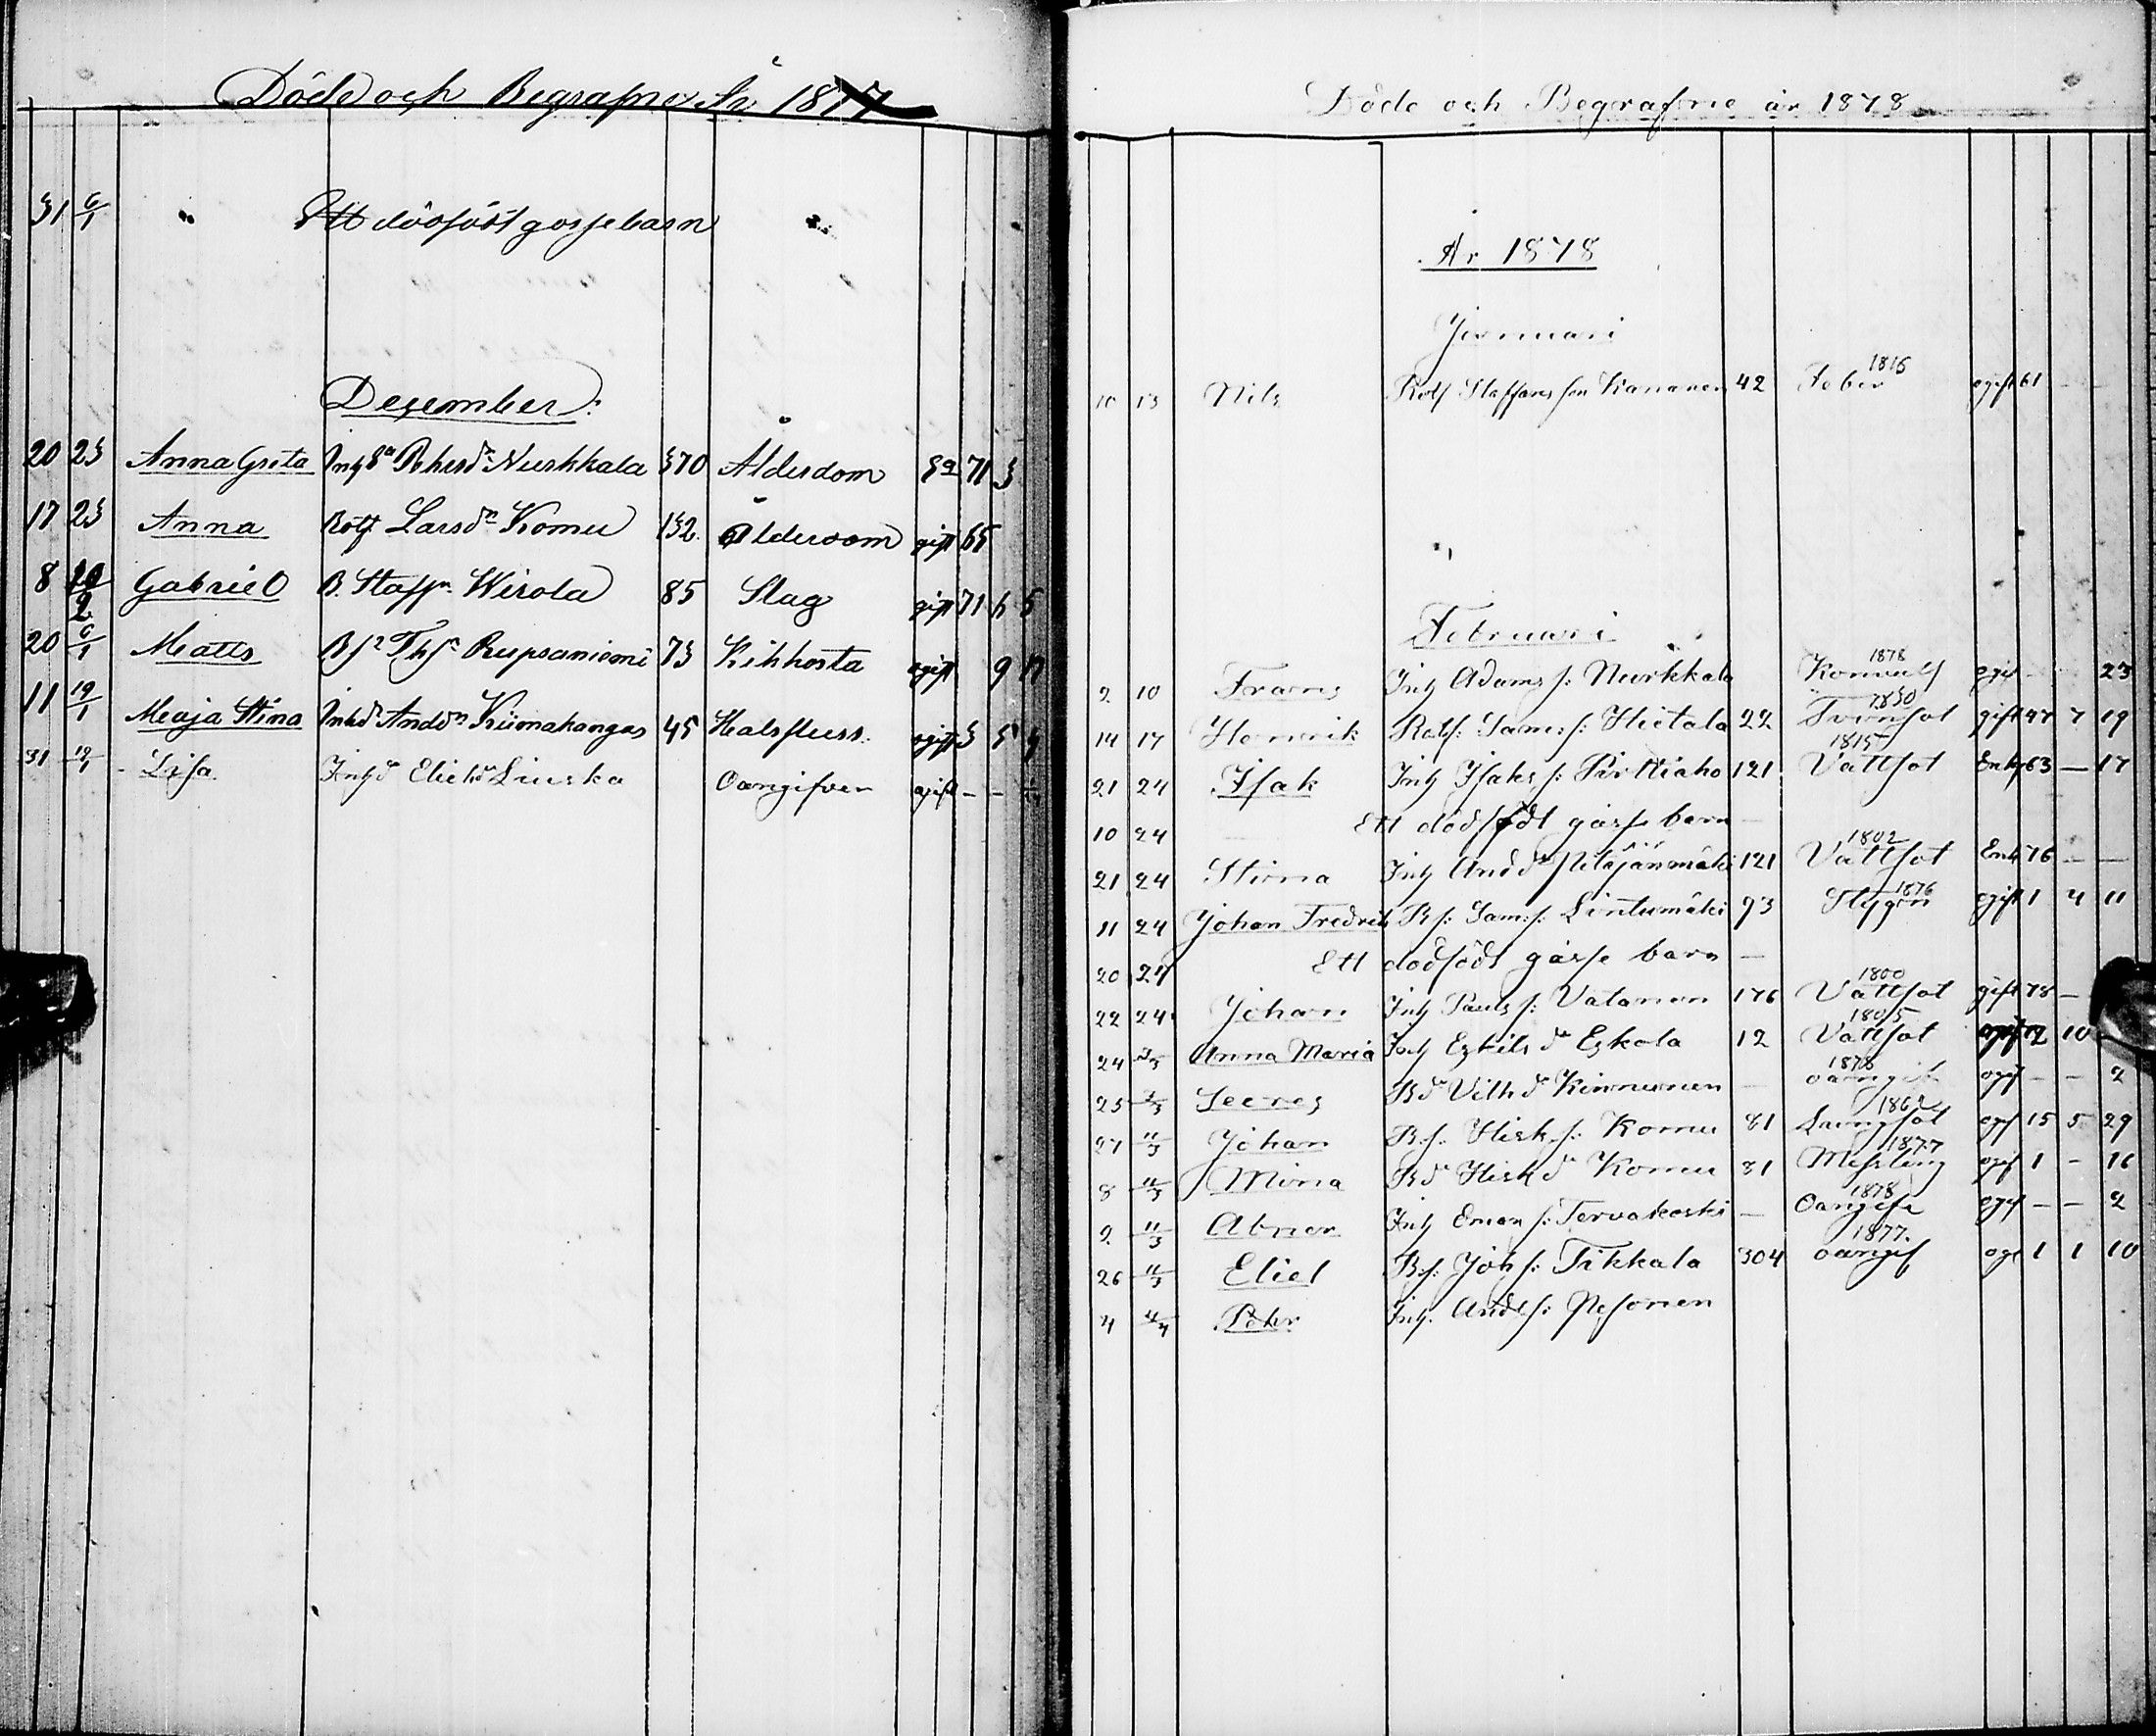 Döde och Begrafne År 1877
31 6/1 " Ett dödfödt gossebarn "
December:
20 23 Anna Greta Inhs Pehrsdr Nurkkala 370 Ålderdom Ea 71 3
17 23 Anna Rotf Larsdr Komu 132 Ålderdom gift 65
8 10/2 Gabriel B. Staffn Wirola 85 Slag gift 71 6 5
20 6/1 Matts Bsn Thsn Rupsaniemi 73 Kikhosta ogift 9 17
11 19/1 Maja Stina Inhdr Anddn Kiimakangas 45 Halsfluss ogift 3 5 9
31 19/1 Lisa Inhd Elielsdr Liuska Oangifven ogift - -
Döde och Begrafne år 1878
År 1878
Januari
10 13 Nils Rotf Staffans son Kananen 42 Feber 1816 ogift 61 - -
Februari
2 10 Frans Inh Adams s: Nurkkala Konvuls 1878 ogif - - 23
14 17 Henrik Rotf: Sam: s: Hietala 22 Tvinsot 1830 gift 47 7 19
21 24 Isak Inh Isaks s: Pirttiaho 121 Vattsot 1815 Enkl 63 - 17
10 24 Ett dödfödt gåsse barn -
21 24 Stina Inh And dr 121 Vattsot 1802 Enk 76 - -
11 24 Johan Fredrik B s: Sam: s: Lintumäki 93 Slygin 1876 ogift 1 4 11
20 24 Ett dödfödt gåsse barn -
22 24 Johan Inh Pauls s: Vatanen 176 Vattsot 1800 gift 78 -
24 3/3 Anna Maria Inh Eskils dr Eskola 12 Vattsot 1805 72 10
25 3/3 Seeres B dr Vilh dr Kinnunen - oangif 1878 ogif - - 2
27 11/3 Johan B. s. Hisk s: Komu 81 Lungsot 1862 ogf 15 5 29
8 11/3 Mina B dr Hisk dr Komu 81 Messling 1877 ogif 1 - 16
2 11/3 Abner Inh Eman s: Tervakoski - Oangifv 1878 ogif - - 2
26 11/3 Eliel B. s. Joh s: Tikkala 304 oangif 1877. ogi 1 1 10
4 4/4 Pehr Inh. Ands s: Pesonen